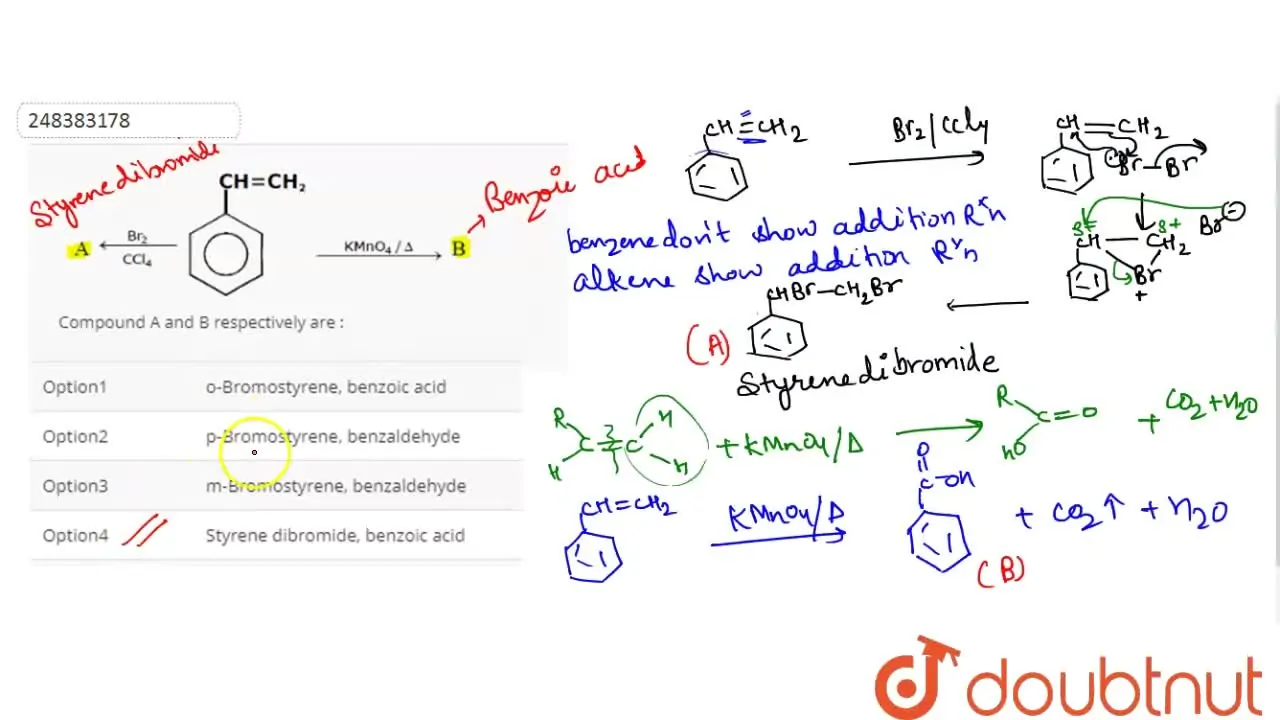 248383178
Styrene dibromide
CH=CH₂
Benzoic acid
A
Br₂
CCl₄
KMnO₄ / Δ
B
Compound A and B respectively are :
Option1 o-Bromostyrene, benzoic acid
Option2 p-Bromostyrene, benzaldehyde
Option3 m-Bromostyrene, benzaldehyde
Option4 Styrene dibromide, benzoic acid
CH=CH2
Br2/CCl4
CH=CH2
Br-Br
benzene don't show addition Rxn
alkene show addition Rxn
δ+ δ+ Br⊖
CH-CH2
Br
+
CHBr-CH2Br
(A)
Styrene dibromide
R H
C=C + KMnO4/Δ
H H
R
C=O + CO2+H2O
HO
CH=CH2
KMnO4/Δ
O
C-OH
+ CO2↑ + H2O
(B)
doubtnut